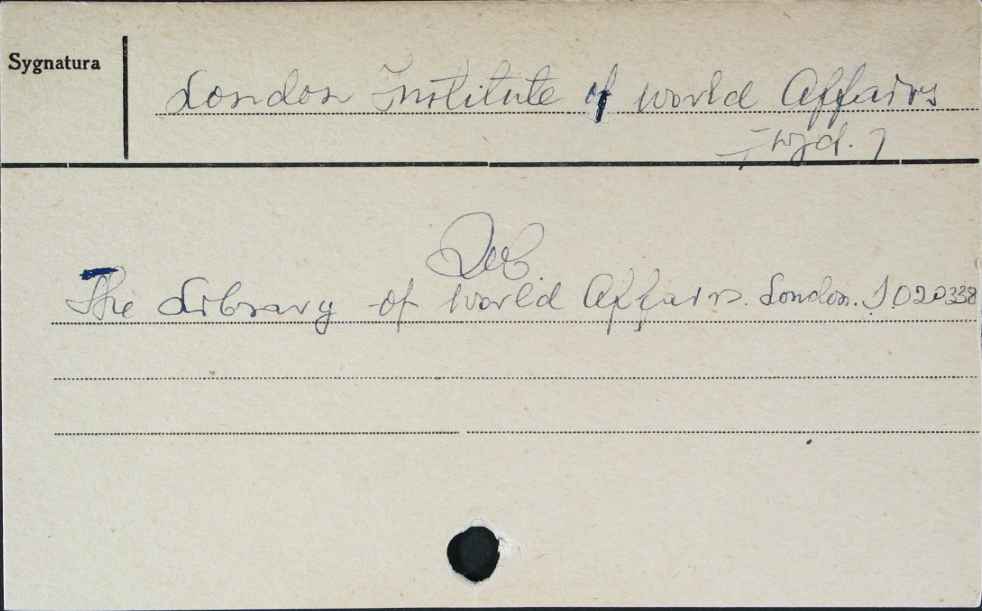 Sygnatura
London Institute of World Affairs
[wyd.]
Zob.
The Library of World Affairs. London. J 020338